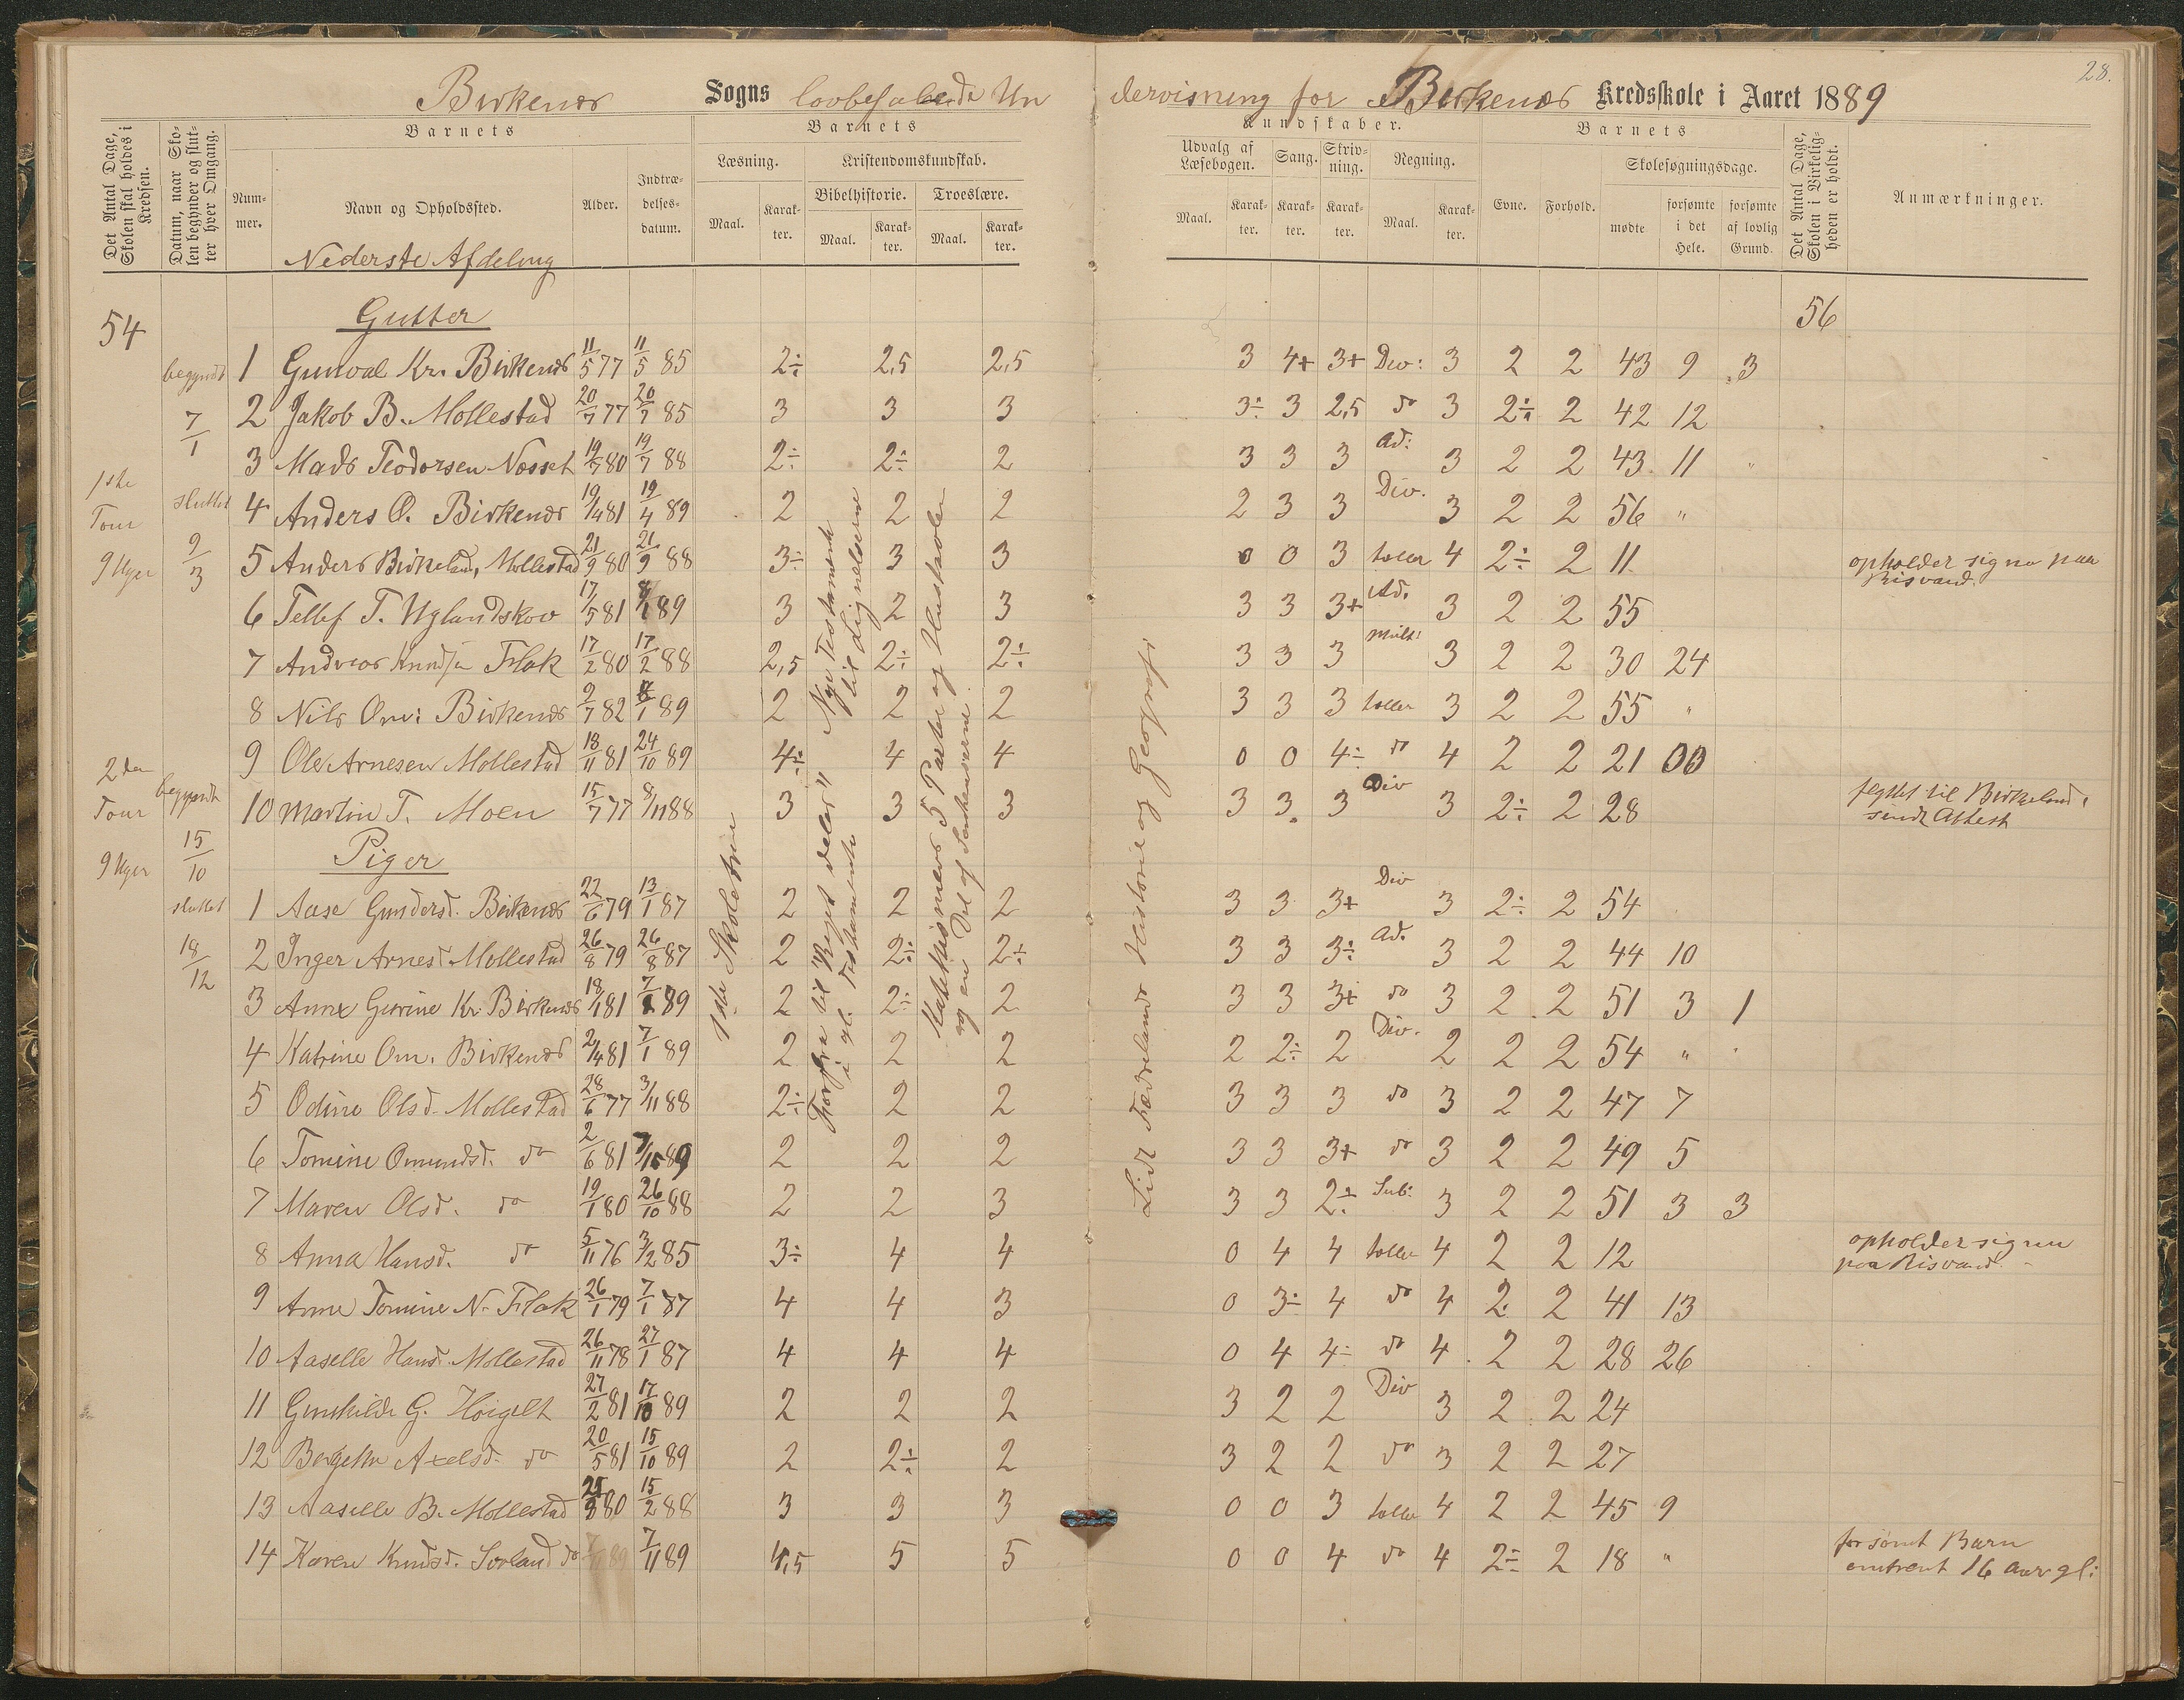 28.
Birkenæs Sogns lovbefalende Undervisning for Birkenæs Kredsskole i Aaret 1889
Det Antal Dage, Skolen skal holdes i Kredsen.
Datum, naar Skolen begynder og slutter hver Omgang.
Barnets
Nummer.
Navn og Opholdssted.
Alder.
Indtrædelsesdatum.
Barnets
Læsning.
Maal.
Karakter.
Kristendomskundskab.
Bibelhistorie.
Maal.
Karakter.
Troeslære.
Maal.
Karakter.
Kundskaber.
Udvalg af Læsebogen.
Maal.
Karakter.
Sang.
Karakter.
Skrivning.
Karakter.
Regning.
Maal.
Karakter.
Barnets
Evne.
Forhold.
Skolesøgningsdage.
mødte
forsømte i det Hele.
forsømte af lovlig Grund.
Det Antal Dage, Skolen i Virkeligheden er holdt.
Anmærkninger.
Nederste Afdeling
54
Gutter
56
begyndt 7/1
sluttet 9/3
1ste Tour 9 Uger
1 Gunval Kr. Birkenæs 11/5 77 11/5 85 2÷ 2,5 2,5 3 4+ 3+ Div: 3 2 2 43 9 3
2 Jakob B. Mollestad 20/7 77 20/7 85 3 3 3 3÷ 3 2,5 do 3 2÷ 2 42 12
3 Mads Teodorsen Nosset 19/7 80 19/7 88 2÷ 2÷ 2 3 3 3 Ad: 3 2 2 43 11 "
4 Anders O. Birkenæs 19/4 81 19/4 89 2 2 2 2 3 3 Div. 3 2 2 56 "
5 Anders Birkeland, Mollestad 21/9 80 21/9 88 3÷ 3 3 0 0 3 taller 4 2÷ 2 11 opholder sig nu paa Risvand.
6 Tellef T. Uglandskov 17/5 81 /1 89 3 2 3 3 3 3+ Ad. 3 2 2 55
7 Andreas Knudsen Flak 17/2 80 17/2 88 2,5 2÷ 2÷ 3 3 3 Mult: 3 2 2 30 24
8 Nils Om: Birkenæs 9/7 82 /1 89 2 2 2 3 3 3 taller 3 2 2 55 "
9 Ole Arnesen Mollestad 18/11 81 24/10 89 4÷ 4 4 0 0 4÷ do 4 2 2 21 00
10 Martin T. Moen 15/7 77 8/11 88 3 3 3 3 3 3 Div 3 2÷ 2 28 flyttet til Birkeland, sendt Attest
2den Tour 9 Uger
begyndt 15/10
sluttet 18/12
Piger
1 Aase Gundersd. Birkenæs 22/6 79 13/1 87 2 2 2 3 3 3+ Div 3 2÷ 2 54
2 Inger Arnesd Mollestad 26/8 79 26/8 87 2 2÷ 2÷ 3 3 3÷ Ad. 3 2 2 44 10
3 Anne Gurine Kr. Birkenæs 18/1 81 7/1 89 2 2÷ 2 3 3 3+ do 3 2 2 51 3 1
4 Katrine Om. Birkenæs 2/4 81 7/1 89 2 2 2 2 2÷ 2 Div. 2 2 2 54 "
5 Odine Olsd. Mollestad 28/6 77 3/11 88 2÷ 2 2 3 3 3 do 3 2 2 47 7
6 Tomine Omundsd. do 2/6 81 89 2 2 2 3 3 3+ do 3 2 2 49 5
7 Maren Olsd. do 19/1 80 26/10 88 2 2 3 3 3 2÷ Sub: 3 2 2 51 3 3
8 Anna Hansd. do 5/11 76 3/2 85 3÷ 4 4 0 4 4 taller 4 2 2 12 opholder sig nu paa Risvand.
9 Anne Tomine N. Flak 26/1 79 7/1 87 4 4 3 0 3÷ 4 do 4 2 2 41 13
10 Aaselle Hansd. Mollestad 26/11 78 27/1 87 4 4 4 0 4 4÷ do 4 2 2 28 26
11 Gunhilde G. Høigilt 27/2 81 17/10 89 2 2 2 3 2 2 Div 3 2 2 24
12 Bergitte Axelsd. do 20/5 81 15/10 89 2 2÷ 2 3 2 2 do 3 2 2 27
13 Aaselle B. Mollestad 80 15/2 88 3 3 3 0 0 3 taller 4 2 2 45 9
14 Karen Knudsd. Sorland do 7/11 89 4,5 5 5 0 0 4 do 4 2÷ 2 18 " forsømt Barn omtrent 16 Aar gl:
1ste Skoletrin
Forfra til "Riget deles" i gl. Testamente
Nye Testamente til Lignelserne
Katekismens 5 Parter og Hustavlen og en Del af Sentenserne.
Lidt Fædrelands Historie og Geografi